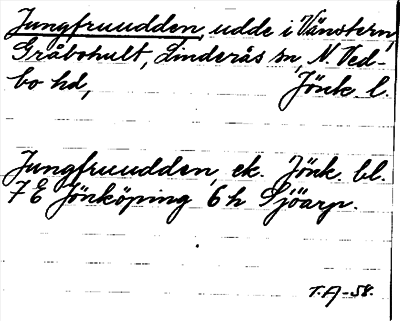 Jungfruudden, udde i Vänstern,
Gråbohult, Linderås sn, N. Ved-
bo hd, Jönk. l.
Jungfruudden, ek. Jönk. bl.
7 E Jönköping 6 h Sjöarp.
T.A-58.